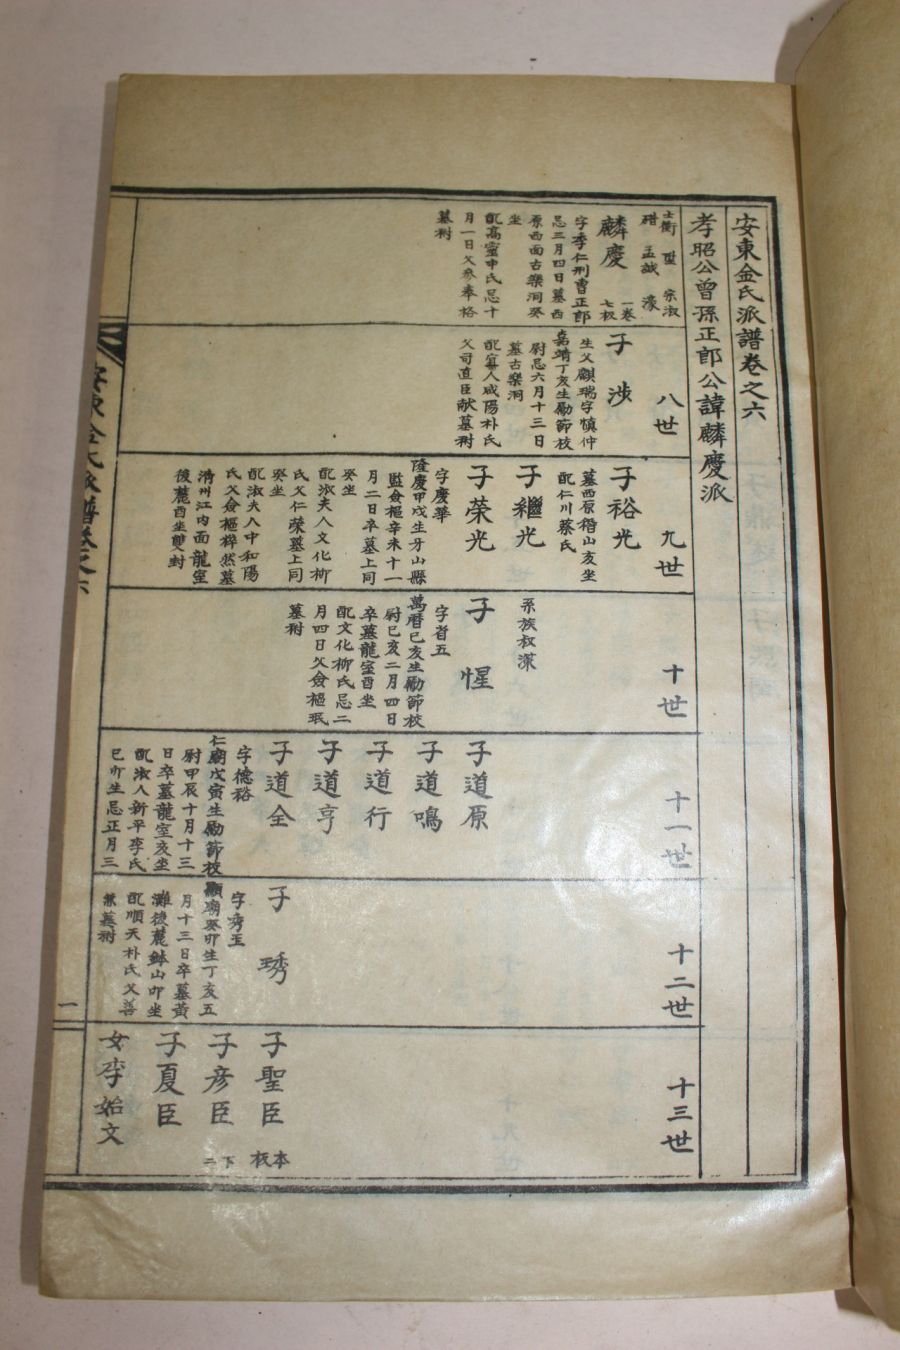 安東金氏派譜卷之六
孝昭公曾孫正郎公諱麟慶派
八世
九世
十世
十一世
十二世
十三世
麟慶
一卷
七板
字季仁刑曹正郎
忌三月四日墓西
原西面古樂洞癸
坐
配高靈申氏忌十
月一日父參奉格
墓祔
子渉
生父顧瑞字愼仲
嘉靖丁亥生勵節校
尉忌六月十三日
墓古樂洞
配宜人咸陽朴氏
父司直臣献墓祔
子裕光
墓西原楷山亥坐
配仁川蔡氏
子繼光
子榮光
字慶華
隆慶甲戌生牙山縣
監僉樞辛未十一
月二日卒墓上同
癸坐
配淑夫人文化柳
氏父仁榮墓上同
癸坐
配淑夫人中和陽
氏父僉樞梓然墓
清州江内面龍室
後麓酉坐雙封
系族叔溁
子惺
字省五
萬曆己亥生勵節校
尉己亥二月四日
卒墓龍室酉坐
配文化柳氏忌二
月四日父僉樞珉
墓祔
子道原
子道鳴
子道行
子道亨
子道全
字德裕
仁廟戊寅生勵節校
尉甲辰十月十三
日卒墓龍室亥坐
配淑人新平李氏
己卯生忌正月三
子琇
字秀玉
顯廟癸卯生丁亥五
月十三日卒墓黃
灘後麓鉢山卯坐
配順天朴氏父善
兼墓祔
子聖臣
本板
子彦臣
下二
子夏臣
女李始文
安東金氏派譜卷之六
一